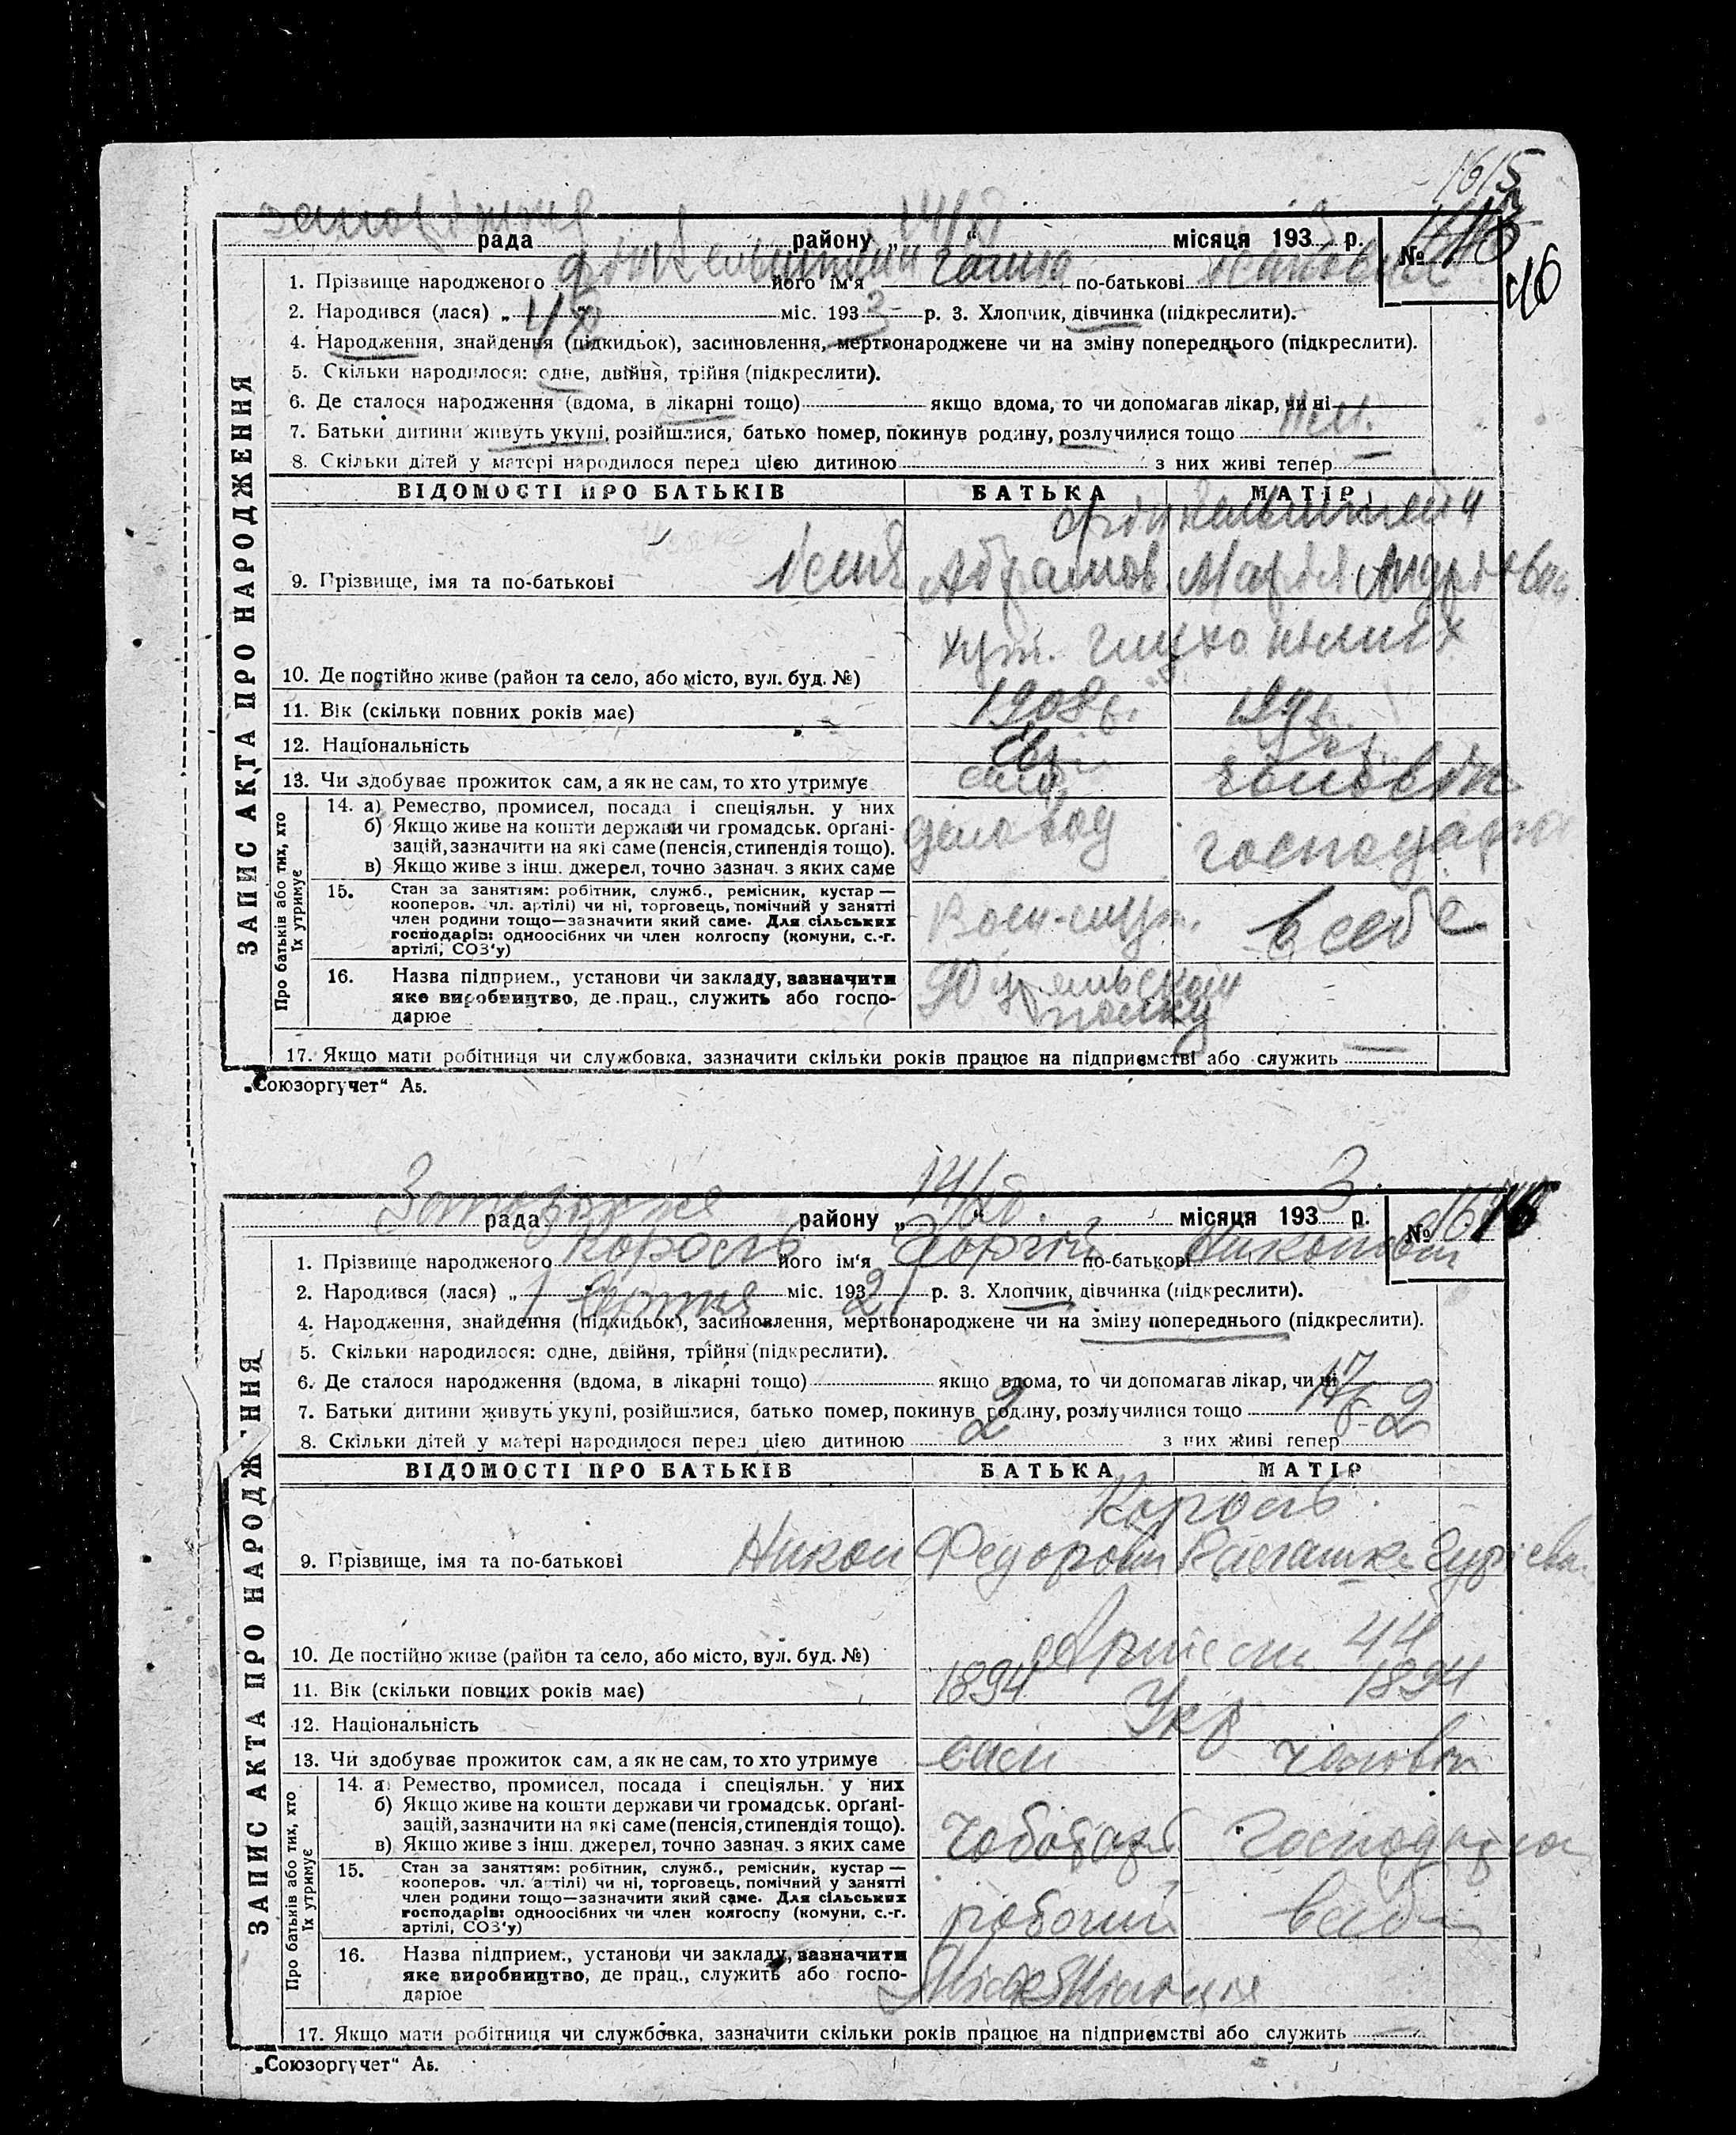 16/5
рада району „ 14/XI “ місяця 1933 р. №
46
1. Прізвище народженого Фінкельштейн його ім'я Галина по-батькові
2. Народився (лася) „ “ міс. 1933 р. 3. Хлопчик, дівчинка (підкреслити).
4. Народження, знайдення (підкидьок), засиновлення, мертвонароджене чи на зміну попереднього (підкреслити).
5. Скільки народилося: одне, двійня, трійня (підкреслити).
6. Де сталося народження (вдома, в лікарні тощо) якщо вдома, то чи допомагав лікар, чи ні
7. Батьки дитини живуть укупі, розійшлися, батько помер, покинув родину, розлучилися тощо
8. Скільки дітей у матері народилося перед цією дитиною з них живі тепер
ЗАПИС АКТА ПРО НАРОДЖЕННЯ
ВІДОМОСТІ ПРО БАТЬКІВ БАТЬКА МАТІР
Фінкельштейн
9. Прізвище, імя та по-батькові Абрамов. Марія Андріевна
10. Де постійно живе (район та село, або місто, вул. буд. №)
11. Вік (скільки повних років має) 1908 р.
12. Національність Євр.
13. Чи здобуває прожиток сам, а як не сам, то хто утримує сам чоловік
Про батьків або тих, хто їх утримує
14. а) Ремество, промисел, посада і спеціяльн. у них
б) Якщо живе на кошти держави чи громадськ. орґані-
зацій, зазначити на які саме (пенсія, стипендія тощо).
в) Якщо живе з інш. джерел, точно зазнач. з яких саме
діловод господарка
15. Стан за заняттям: робітник, служб., ремісник, кустар —
кооперов. чл. артілі) чи ні, торговець, помічний у занятті
член родини тощо—зазначити який саме. Для сільських
господарів: одноосібних чи член колгоспу (комуни, с.-г.
артілі, СОЗ'у)
Воен-служ. в себе
16. Назва підприєм., установи чи закладу, зазначити
яке виробництво, де прац., служить або госпо-
дарює
90 полку
17. Якщо мати робітниця чи службовка, зазначити скільки років працює на підприємстві або служить
„Союзоргучет“ Аб.
Запоріжжя рада району „ 14/XI “ місяця 1933 р. №
1. Прізвище народженого Король його ім'я Георгій по-батькові Никонович
2. Народився (лася) „ 1 “ серпня міс. 1932 р. 3. Хлопчик, дівчинка (підкреслити).
4. Народження, знайдення (підкидьок), засиновлення, мертвонароджене чи на зміну попереднього (підкреслити).
5. Скільки народилося: одне, двійня, трійня (підкреслити).
6. Де сталося народження (вдома, в лікарні тощо) якщо вдома, то чи допомагав лікар, чи ні
7. Батьки дитини живуть укупі, розійшлися, батько помер, покинув родину, розлучилися тощо
8. Скільки дітей у матері народилося перед цією дитиною 2 з них живі тепер 2
ЗАПИС АКТА ПРО НАРОДЖЕННЯ
ВІДОМОСТІ ПРО БАТЬКІВ БАТЬКА МАТІР
Король
9. Прізвище, імя та по-батькові Никон Федорович
10. Де постійно живе (район та село, або місто, вул. буд. №) 44
11. Вік (скільки повних років має) 1894 1894
12. Національність Укр
13. Чи здобуває прожиток сам, а як не сам, то хто утримує сам чоловік
Про батьків або тих, хто їх утримує
14. а) Ремество, промисел, посада і спеціяльн. у них
б) Якщо живе на кошти держави чи громадськ. орґані-
зацій, зазначити на які саме (пенсія, стипендія тощо).
в) Якщо живе з інш. джерел, точно зазнач. з яких саме
чоботар Господарка
15. Стан за заняттям: робітник, служб., ремісник, кустар —
кооперов. чл. артілі) чи ні, торговець, помічний у занятті
член родини тощо—зазначити який саме. Для сільських
господарів: одноосібних чи член колгоспу (комуни, с.-г.
артілі, СОЗ'у)
робочий в себе
16. Назва підприєм., установи чи закладу, зазначити
яке виробництво, де прац., служить або госпо-
дарює
17. Якщо мати робітниця чи службовка, зазначити скільки років працює на підприємстві або служить
„Союзоргучет“ Аб.